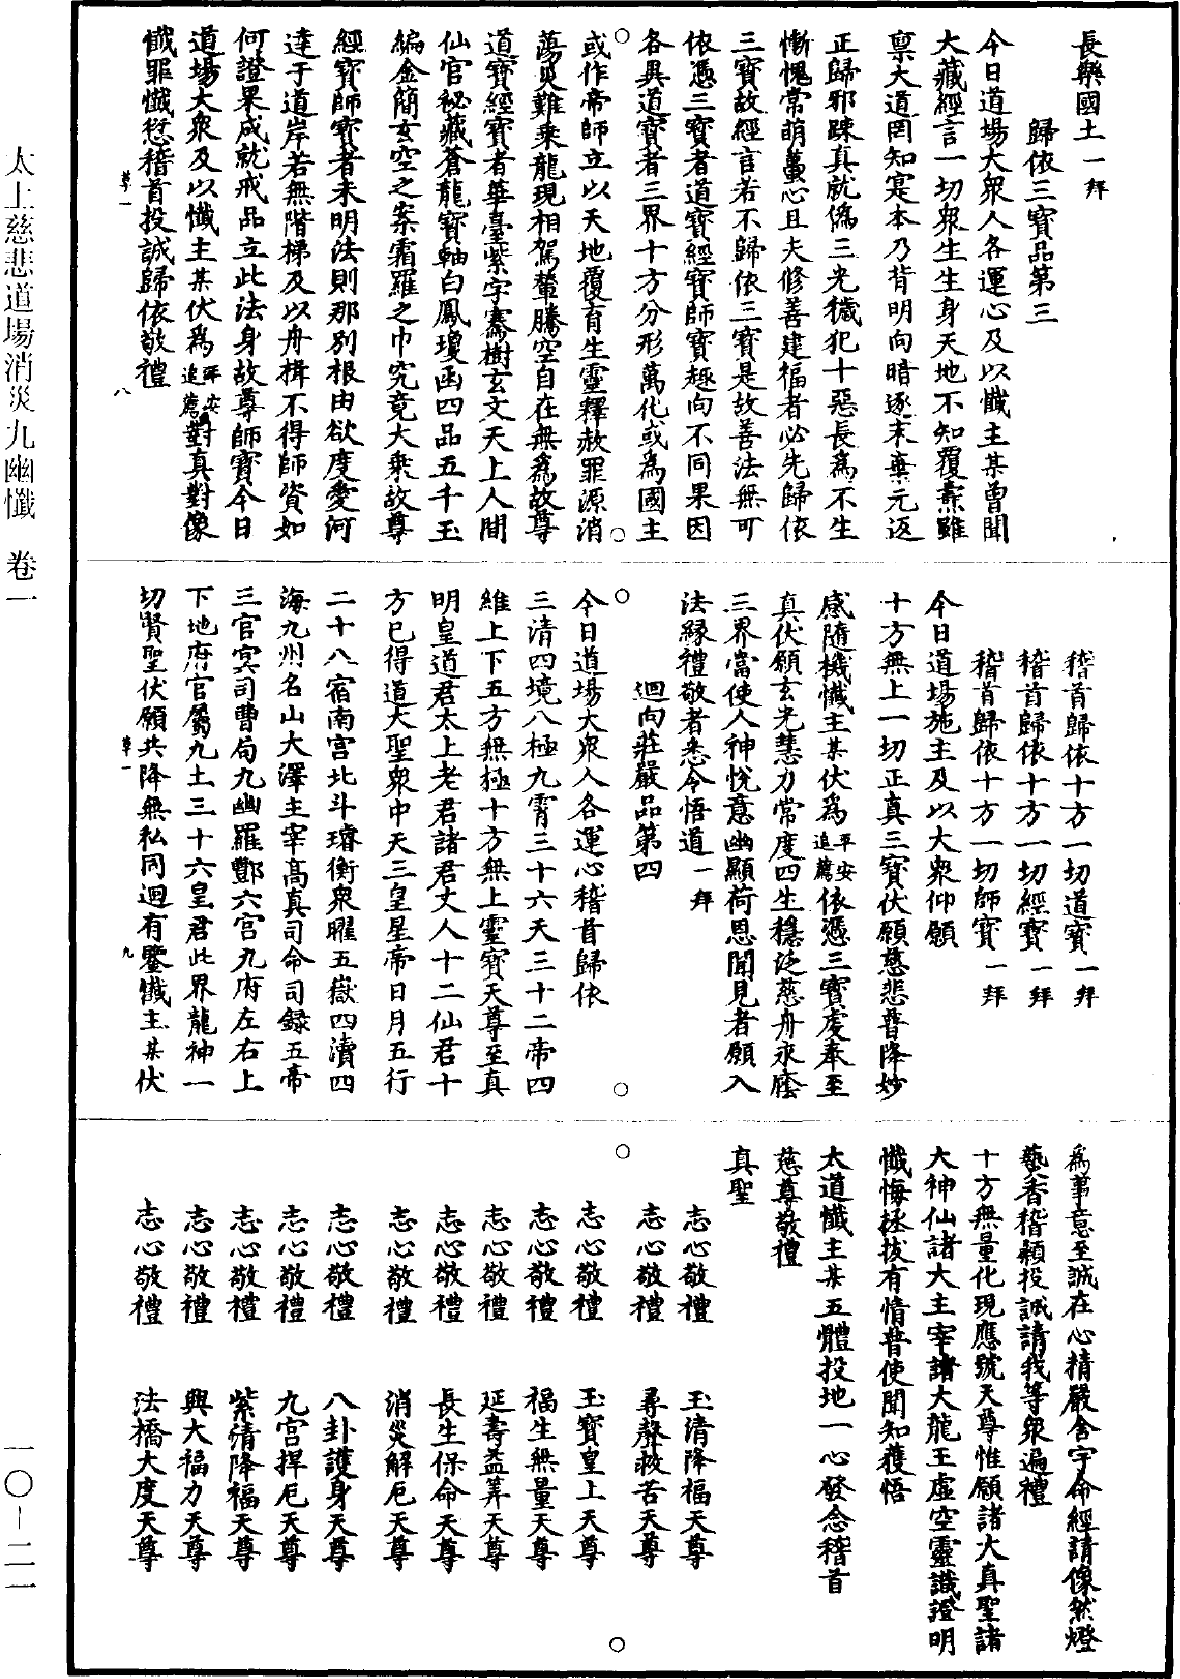 長樂國土一拜
歸依三寶品第三
今日道場大衆人各運心及以懺主某曾聞
大藏經言一切衆生生身天地不知覆燾雖
禀大道罔知寔本乃背明向暗逐末棄元返
正歸邪踈真就僞三光穢犯十惡長爲不生
慚愧常萌蠆心且夫修善建福者必先歸依
三寶故經言若不歸依三寶是故善法無可
依憑三寶者道寶經寶師寶趣向不同果因
各異道寶者三界十方分形萬化或爲國主
或作帝師立以天地覆育生靈釋赦罪源消
蕩災難乘龍現相駕輦騰空自在無爲故尊
道寶經寶者華臺紫字騫樹玄文天上人間
仙官祕藏蒼龍寶軸白鳳瓊函四品五千玉
編金簡玄空之案霜羅之巾究竟大乘故尊
經寶師寶者未明法則那别根由欲度愛河
達于道岸若無階梯及以舟楫不得師資如
何證果成就戒品立此法身故尊師寶今日
道場大衆及以懺主某伏爲平安追薦對真對像
懺罪懺愆稽首投誠歸依敬禮
尊一 八
稽首歸依十方一切道寶一拜
稽首歸依十方一切經寶一拜
稽首歸依十方一切師寶一拜
今日道場施主及以大衆仰願
十方無上一切正真三寶伏願慈悲普降妙
感隨機懺主某伏爲平安追薦依憑三寶虔奉至
真伏願玄光慧力常度四生穩泛慈舟永廕
三界當使人神悅意幽顯荷恩聞見者願入
法緣禮敬者悉令悟道一拜
迴向莊嚴品第四
今日道場大衆人各運心稽首歸依
三清四境八極九霄三十六天三十二帝四
維上下五方無極十方無上靈寶天尊至真
明皇道君太上老君諸君丈人十二仙君十
方已得道大聖衆中天三皇星帝日月五行
二十八宿南宫北斗璿衡衆曜五嶽四瀆四
海九州名山大澤主宰高真司命司録五帝
三官冥司曹局九幽羅酆六宫九府左右上
下地府官屬九土三十六皇君此界龍神一
切賢聖伏願共降無私同迴有鑒懺主某伏
尊一 九
爲事意至誠在心精嚴舍宇命經請像然燈
爇香稽顙投誠請我等衆遍禮
十方無量化現應號天尊惟願諸大真聖諸
大神仙諸大主宰諸大龍王虛空靈識證明
懺悔拯拔有情普使聞知獲悟
太道懺主某五體投地一心發念稽首
慈尊敬禮
真聖
志心敬禮 玉清降福天尊
志心敬禮 尋聲救苦天尊
志心敬禮 玉寶皇上天尊
志心敬禮 福生無量天尊
志心敬禮 延壽益筭天尊
志心敬禮 長生保命天尊
志心敬禮 消災解厄天尊
志心敬禮 八卦護身天尊
志心敬禮 九宫捍厄天尊
志心敬禮 紫清降福天尊
志心敬禮 興大福力天尊
志心敬禮 法橋大度天尊
太上慈悲道場消災九幽懺 卷一
一〇—二一